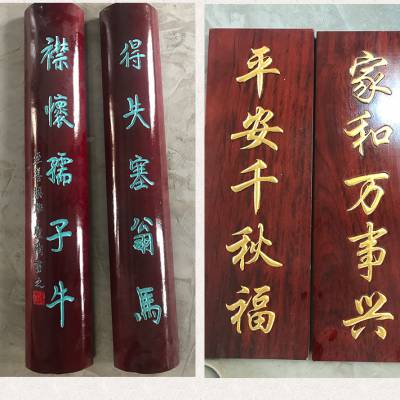 得失塞翁馬
襟懷孺子牛
家和万事兴
平安千秋福